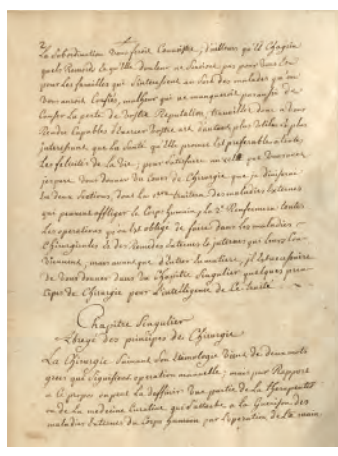 2
La Subordination vous feroit Connoître, d'ailleurs qu'El Chagrin
quels Remords et qu'Elle douleur ne seroient pas pour vous Et
pour les familles qui s'interessent au sort des malades qu'on
vous auroit Confiés, malheur qui ne manqueroit pas aussi de
Causer la perte de vostre Reputation; travaillés donc a vous
Rendre Capables d'Exercer vostre art d'autant plus Utile et plus
interessant que la Santé qu'Elle procure Est preferable a toutes
Les felicités de la Vie; pour satisfaire au zele que
je vous donner un Cours de Chirurgie que je diviserai
En deux Sections, dont la 1ere traitera des maladies Externes
qui peuvent affliger le Corps humain, la 2e Renfermera toutes
Les operations qu'on Est obligé de faire dans les maladies
Chirurgicales et des Remedes Externes et internes qui leurs Con-
viennent; mais avant que d'Entrer En matiere, il Est necessaire
de vous donner dans un Chapitre Singulier quelques prin-
cipes de Chirurgie pour L'intelligence de Ce traité
Chapitre Singulier
Abregé des principes de Chirurgie
La Chirurgie Suivant son Etimologie Vient de deux mots
grecs qui Signifient operation manuelle; mais par Rapport
a Ce propos on peut La deffinir Une partie de la therapeutique
ou de la medecine Curative, qui s'attache a la Guerison des
maladies Externes du Corps humain par l'operation de la main